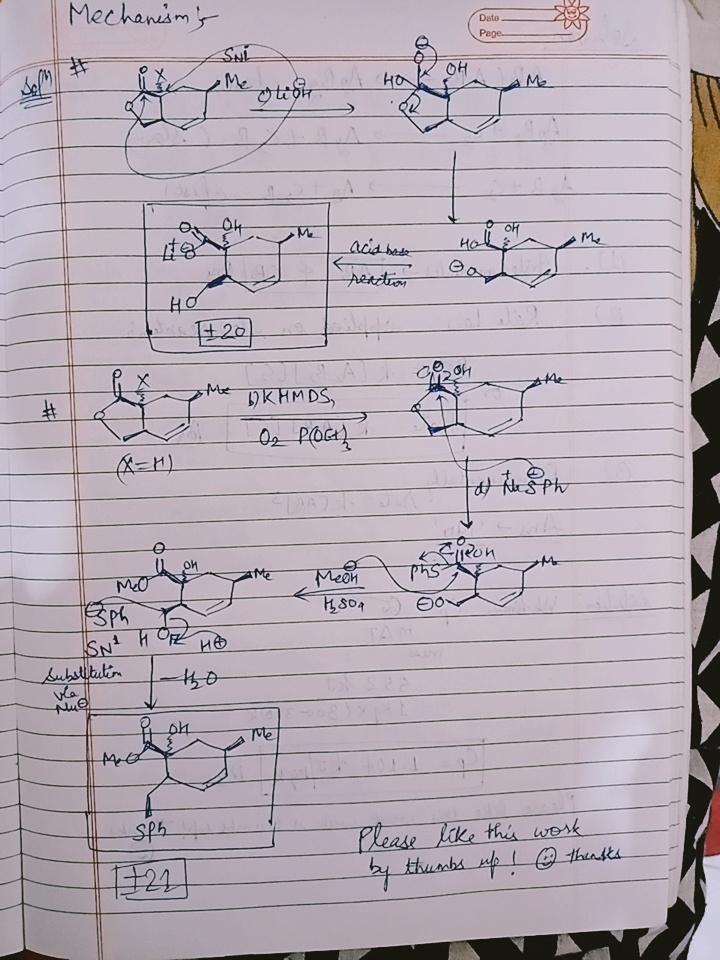 Mechanism:-
Date
Page
Solⁿ
#
SNi
O
X
Me
O
c) LiOH
⊖
O
HO
OH
Me
O
O
OH
Me
Li⁺
⊖O
HO
±20
acid base
reaction
O
HO
OH
Me
⊖O
#
O
X
Me
O
(X=H)
b) KHMDS,
O₂ P(OEt)₃
O
OH
Me
O
d) Na⁺ SPh
⊖
O
MeO
OH
Me
⊖SPh
H
H⊕
MeOH
H₂SO₄
O
OH
PhS
Me
⊖O
SN¹
Substitution
via
Nu⊖
-H₂O
O
OH
MeO
Me
SPh
±21
Please like this work
by thumbs up! thanks